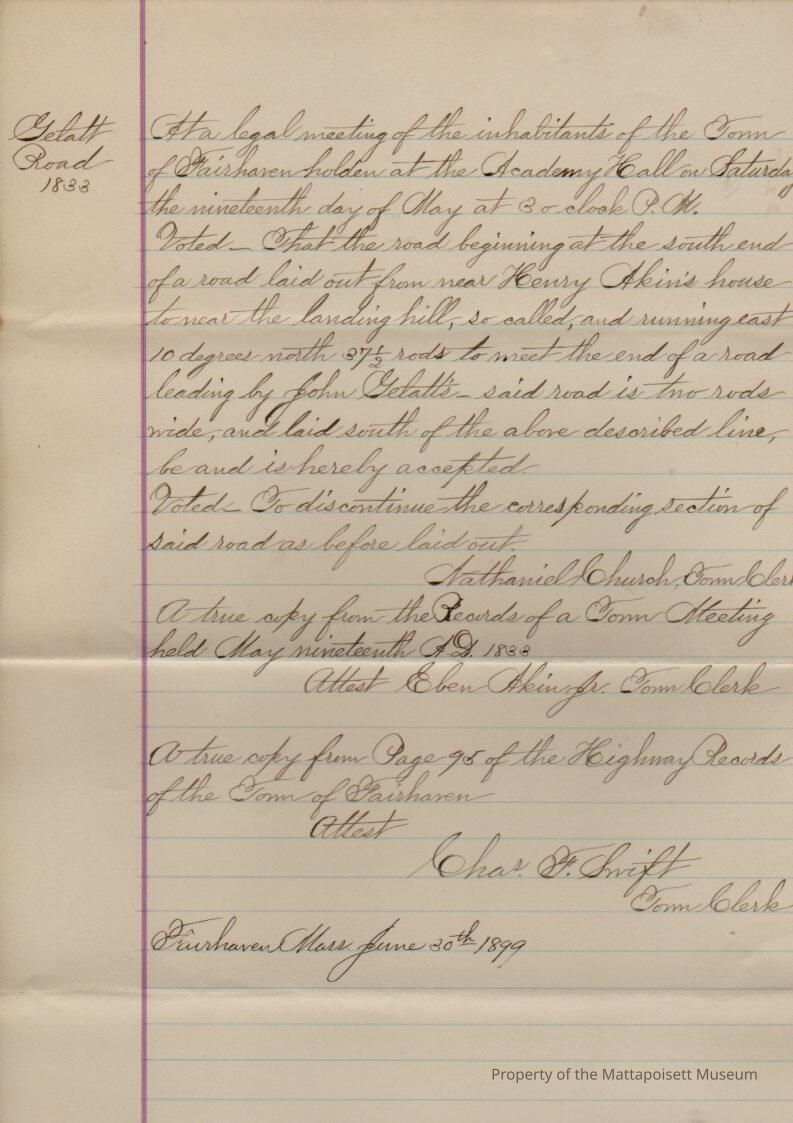 Gelatt
Road
1833
At a legal meeting of the inhabitants of the Town
of Fairhaven holden at the Academy Hall on Saturday
the nineteenth day of May at 3 o clock P. M.
Voted – That the road beginning at the south end
of a road laid out from near Henry Akin's house
to near the landing hill, so called, and running east
10 degrees north 37½ rods to meet the end of a road
leading by John Gelatt's – said road is two rods
wide, and laid south of the above described line,
be and is hereby accepted.
Voted – To discontinue the corresponding section of
said road as before laid out.
Nathaniel Church, Town Clerk
A true copy from the Records of a Town Meeting
held May nineteenth A.D. 1833
Attest Eben Akin Jr. Town Clerk
A true copy from Page 95 of the Highway Records
of the Town of Fairhaven
Attest
Chas. F. Swift
Town Clerk
Fairhaven Mass. June 30th 1899
Property of the Mattapoisett Museum